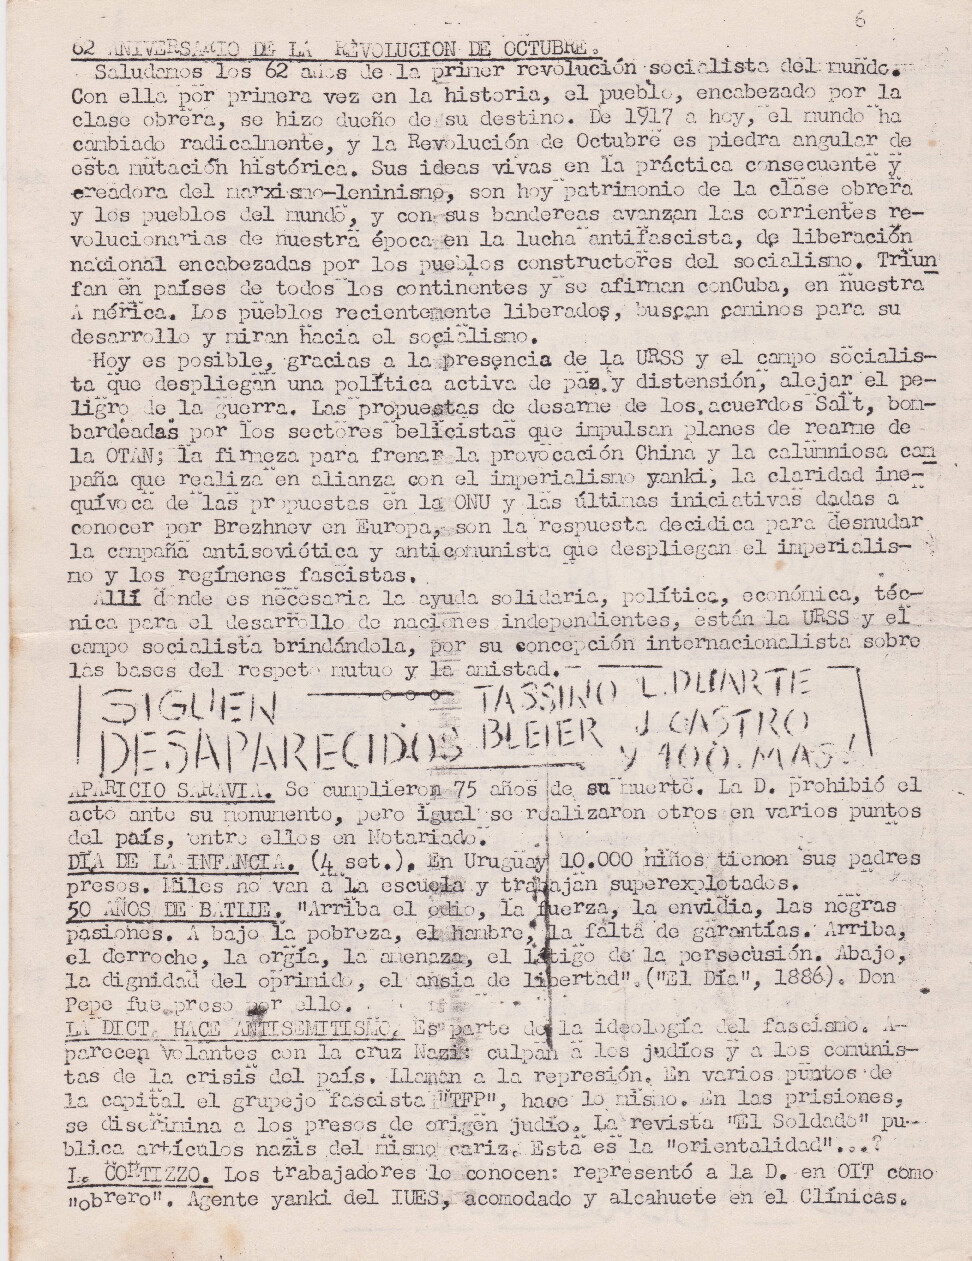 6
62 ANIVERSARIO DE LA REVOLUCION DE OCTUBRE.
Saludamos los 62 años de la primer revolución socialista del mundo.
Con ella por primera vez en la historia, el pueblo, encabezado por la
clase obrera, se hizo dueño de su destino. De 1917 a hoy, el mundo ha
cambiado radicalmente, y la Revolución de Octubre es piedra angular de
esta mutación histórica. Sus ideas vivas en la práctica consecuente y
creadora del marxismo-leninismo, son hoy patrimonio de la clase obrera
y los pueblos del mundo, y con sus bandereas avanzan las corrientes re-
volucionarias de nuestra época en la lucha antifascista, de liberación
nacional encabezadas por los pueblos constructores del socialismo. Triun
fan en países de todos los continentes y se afirman conCuba, en nuestra
A mérica. Los pueblos recientemente liberados, buscan caminos para su
desarrollo y miran hacia el socialismo.
Hoy es posible, gracias a la presencia de la URSS y el campo socialis-
ta que despliegan una política activa de paz y distensión, alejar el pe-
ligro de la guerra. Las propuestas de desarme de los acuerdos Salt, bom-
bardeadas por los sectores belicistas que impulsan planes de rearme de
la OTAN; la firmeza para frenar la provocación China y la calumniosa cam
paña que realiza en alianza con el imperialismo yanki, la claridad ine-
quívoca de las propuestas en la ONU y las últimas iniciativas dadas a
conocer por Brezhnev en Europa, son la respuesta decidica para desnudar
la campaña antisoviética y anticomunista que despliegan el imperialis-
mo y los regímenes fascistas.
Allí donde es necesaria la ayuda solidaria, política, económica, téc-
nica para el desarrollo de naciones independientes, están la URSS y el
campo socialista brindándola, por su concepción internacionalista sobre
las bases del respeto mutuo y la amistad.
SIGUEN TASSINO L. DUARTE
DESAPARECIDOS BLEIER J. CASTRO
Y 100. MAS!
APARICIO SARAVIA. Se cumplieron 75 años de su muerte. La D. prohibió el
acto ante su monumento, pero igual se realizaron otros en varios puntos
del país, entre ellos en Notariado.
DÍA DE LA INFANCIA. (4 set.). En Uruguay 10.000 niños tienen sus padres
presos. Miles no van a la escuela y trabajan superexplotados.
50 AÑOS DE BATLLE. "Arriba el odio, la fuerza, la envidia, las negras
pasiones. A bajo la pobreza, el hambre, la falta de garantías. Arriba,
el derroche, la orgía, la amenaza, el látigo de la persecusión. Abajo,
la dignidad del oprimido, el ansia de libertad". ("El Día", 1886). Don
Pepe fue preso por ello.
LA DICT. HACE ANTISEMITISMO. Es parte de la ideología del fascismo. A-
parecen volantes con la cruz Nazi: culpan a los judíos y a los comunis-
tas de la crisis del país. Llaman a la represión. En varios puntos de
la capital el grupejo fascista "TFP", hace lo mismo. En las prisiones,
se discrimina a los presos de origen judío. La revista "El Soldado" pu-
blica artículos nazis del mismo cariz. Está es la "orientalidad"...?
L. CORTIZZO. Los trabajadores lo conocen: representó a la D. en OIT como
"obrero". Agente yanki del IUES, acomodado y alcahuete en el Clínicas.